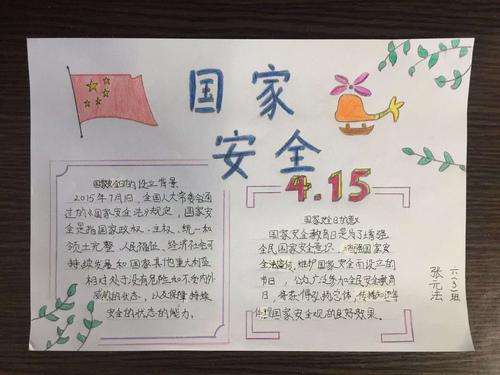 国家
安全
4.15
国家安全日的设立背景
2015年7月1日，全国人大常委会通
过的《国家安全法》规定，国家安
全是指国家政权、主权、统一和
领土完整、人民福祉、经济社会可
持续发展和国家其他重大利益
相对处于没有危险和不受内外
威胁的状态，以及保障持续
安全的状态的能力。
国家安全日的意义
国家安全教育日是为了增强
全民国家安全意识，
维护国家安全而设立的
节日，公众广泛参加全民安全教育
日，
国家安全观的良好效果。
六（3）班
张元法